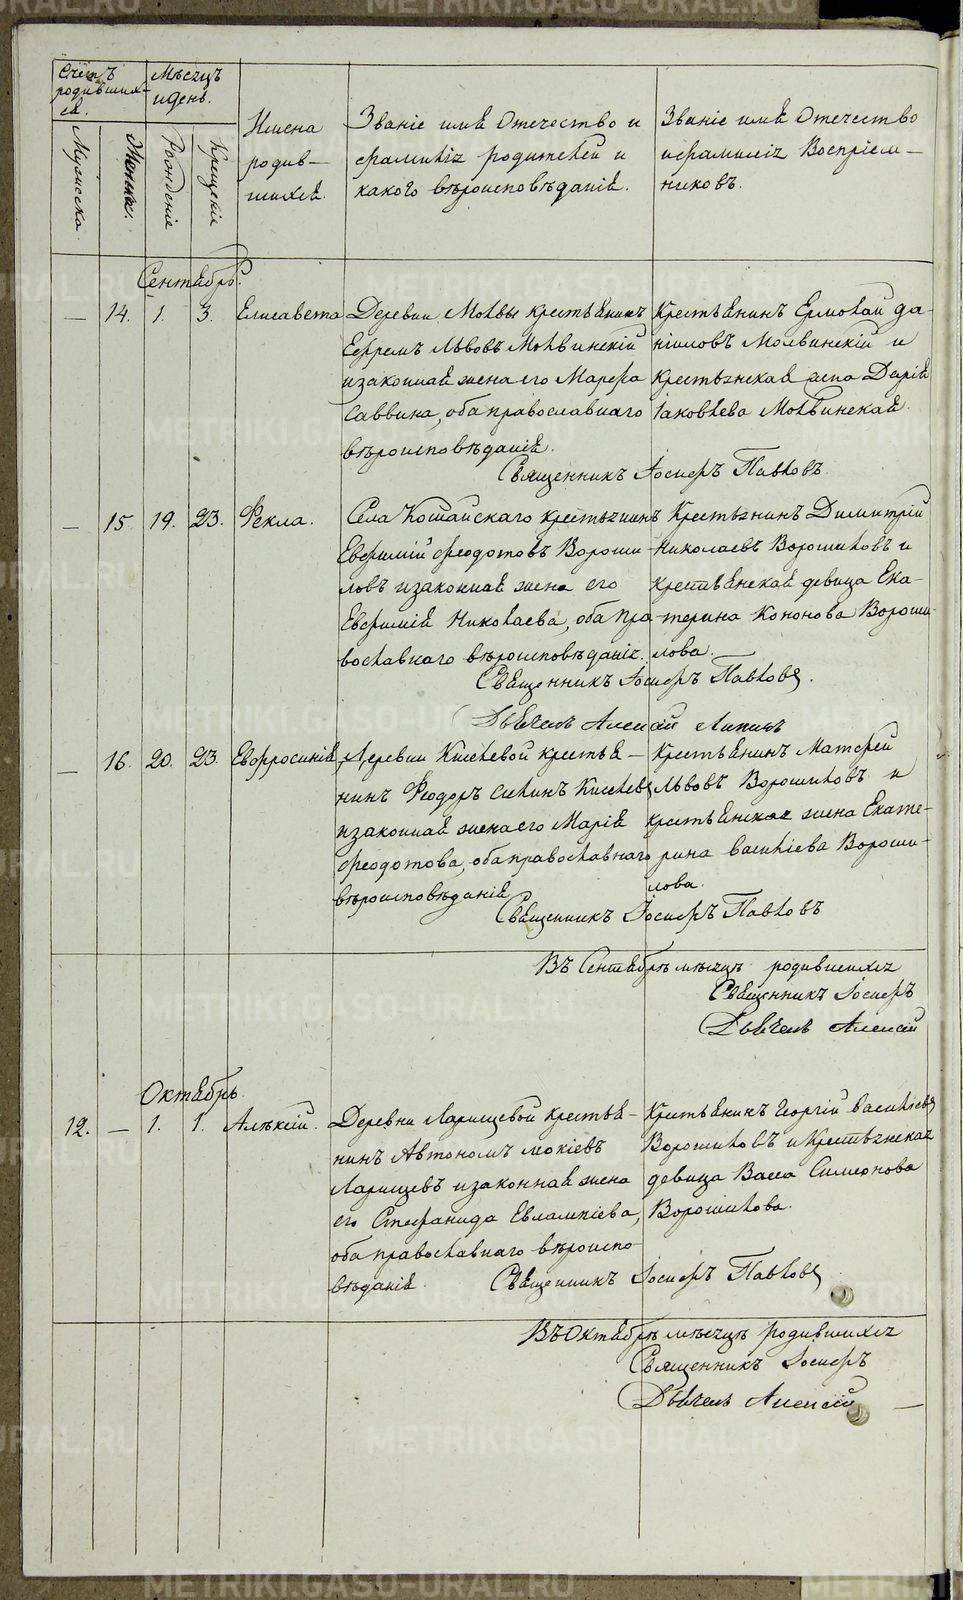 Счетъ родивших-ся.
Мѣсяцъ и день.
Мужеска.
Женска.
Рожденіе
Крещеніе
Имена
родив-
шихся.
Званіе имя Отечество и
фамилія родителей и
какого вѣроисповѣданія.
Званіе имя Отечество
и фамилія Воспріем-
никовъ.
Сентябрь.
— 14. 1. 3. Елисавета
Деревни Молвы крестьянинъ
Ефремъ Львовъ Молвинскій
и законная жена его Марфа
Саввина, оба православнаго
вѣроисповѣданія.
Крестьянинъ Ермолай Да-
ніиловъ Молвинскій и
крестьянская жена Дарія
Іаковлева Молвинская.
Священникъ Іосифъ Павловъ.
— 15. 19. 23. Фекла.
Села Кошайскаго крестьянинъ
Евфимій Феодотовъ Вороши-
ловъ и законная жена его
Евфимія Николаева, оба пра-
вославнаго вѣроисповѣданія.
Крестьянинъ Димитрій
Николаевъ Ворошиловъ и
крестьянская девица Ека-
терина Кононова Вороши-
лова.
Священникъ Іосифъ Павловъ.
Дьячекъ Алексій Липинъ
— 16. 20. 23. Евфросинія
Деревни Киселевой крестья-
нинъ Феодоръ Киселевъ
и законная жена его Марія
Феодотова, оба православнаго
вѣроисповѣданія
Крестьянинъ Матфей
Львовъ Ворошиловъ и
крестьянская жена Екате-
рина Василіева Вороши-
лова.
Священникъ Іосифъ Павловъ
Въ Сентябрѣ мѣсяцѣ родившихся
Священникъ Іосифъ
Дьячекъ Алексій
Октябрь
12. — 1. 1. Алѣксій.
Деревни Ларищевой крестья-
нинъ Автономъ Мокіевъ
Ларищевъ и законная жена
его Стефанида Евлампіева,
оба православнаго вѣроиспо
вѣданія.
Крестьянинъ Георгій Василіевъ
Ворошиловъ и Крестьянская
девица Васса Симеонова
Ворошилова.
Священникъ Іосифъ Павловъ
Въ Октябрѣ мѣсяцѣ родившихся
Священникъ Іосифъ
Дьячекъ Алексій —
METRIKI.GASO-URAL.RU